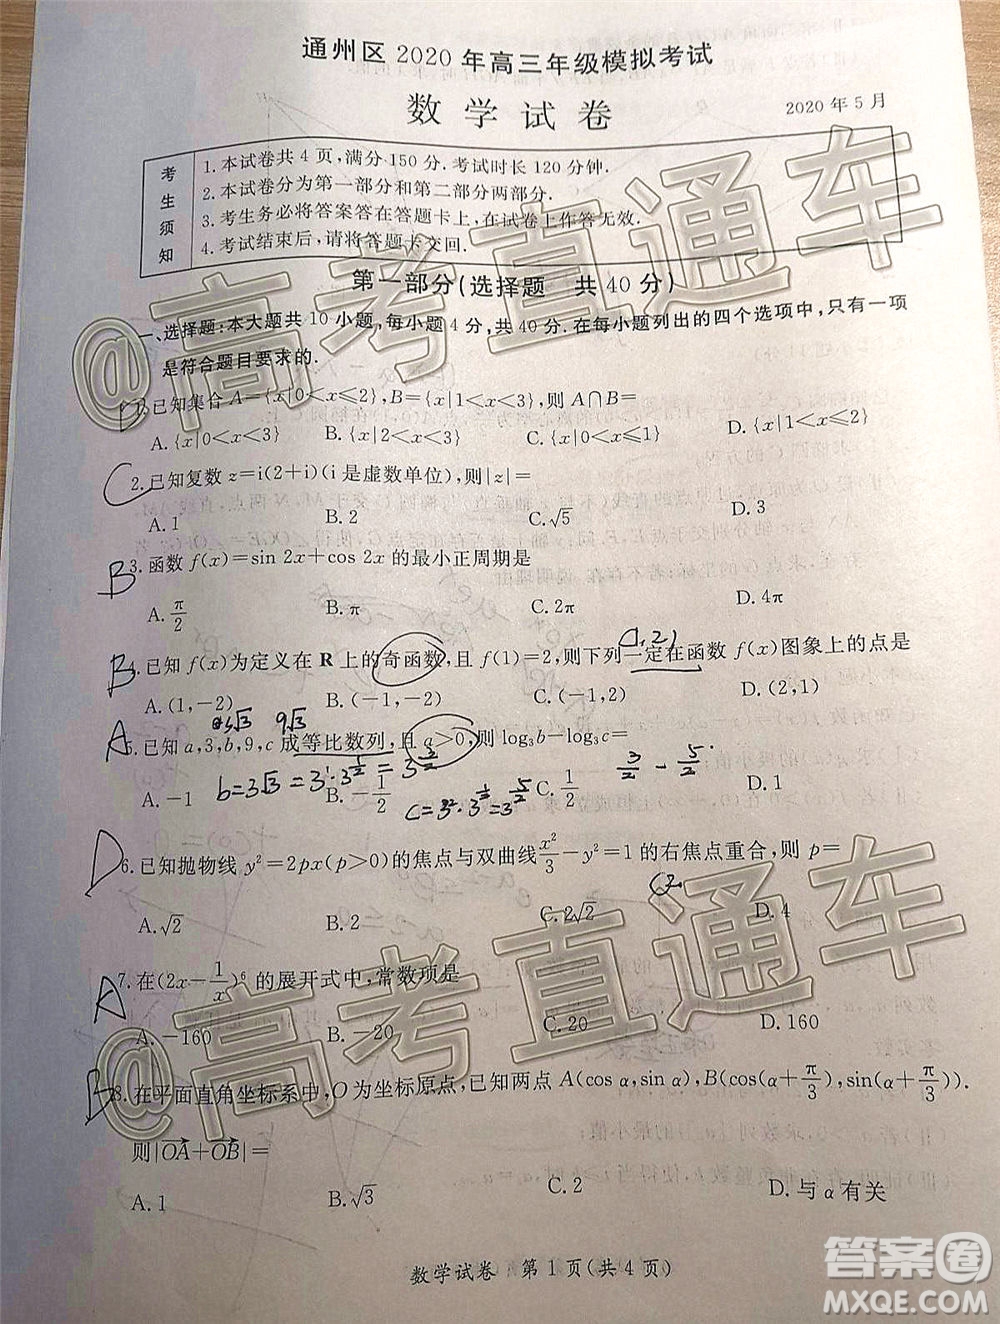 通州区 2020 年高三年级模拟考试
数 学 试 卷
2020 年 5 月
考生须知
1. 本试卷共 4 页，满分 150 分. 考试时长 120 分钟.
2. 本试卷分为第一部分和第二部分两部分.
3. 考生务必将答案答在答题卡上，在试卷上作答无效.
4. 考试结束后，请将答题卡交回.
第一部分(选择题 共 40 分)
一、选择题：本大题共 10 小题，每小题 4 分，共 40 分. 在每小题列出的四个选项中，只有一项
是符合题目要求的.
1. 已知集合 A={x|0<x≤2}，B={x|1<x<3}，则 A∩B=
A. {x|0<x<3} B. {x|2<x<3} C. {x|0<x≤1} D. {x|1<x≤2}
C 2. 已知复数 z=i(2+i)(i 是虚数单位)，则|z|=
A. 1 B. 2 C. √5 D. 3
B 3. 函数 f(x)=sin 2x+cos 2x 的最小正周期是
A. π/2 B. π C. 2π D. 4π
(1,2)
B 4. 已知 f(x)为定义在 R 上的奇函数，且 f(1)=2，则下列一定在函数 f(x)图象上的点是
A. (1,-2) B. (-1,-2) C. (-1,2) D. (2,1)
3√3 9√3
A 5. 已知 a,3,b,9,c 成等比数列，且 a>0，则 log₃b-log₃c=
b=3√3=3¹·3^(1/2)=3^(3/2) 3/2 - 5/2
A. -1 B. -1/2 C. 1/2 D. 1
c=3²·3^(1/2)=3^(5/2)
D 6. 已知抛物线 y²=2px(p>0)的焦点与双曲线 x²/3-y²=1 的右焦点重合，则 p=
(2.
A. √2 B. 2 C. 2√2 D. 4
A 7. 在(2x-1/x)⁶ 的展开式中，常数项是
A. -160 B. -20 C. 20 D. 160
B 8. 在平面直角坐标系中，O 为坐标原点，已知两点 A(cos α,sin α)，B(cos(α+π/3),sin(α+π/3)).
则|OA+OB|=
A. 1 B. √3 C. 2 D. 与 α 有关
数学试卷 第 1 页(共 4 页)
@高考直通车
@高考直通车
答案圈
MXQE.COM